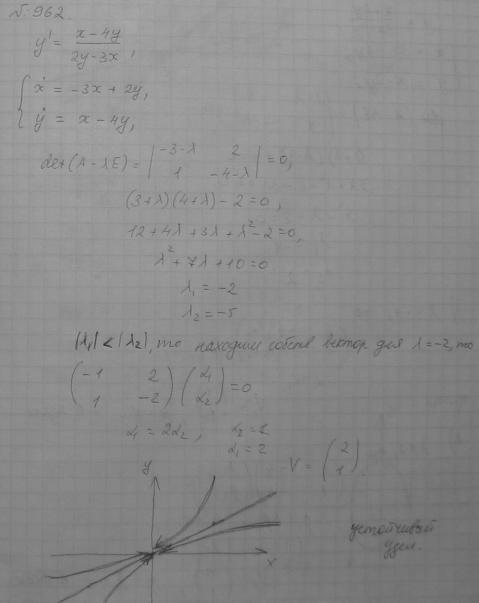 № 962.
y' = (x-4y)/(2y-3x),
{ ẋ = -3x + 2y,
ẏ = x - 4y,
det(A-λE) = | -3-λ 2 | = 0,
| 1 -4-λ |
(3+λ)(4+λ) - 2 = 0,
12 + 4λ + 3λ + λ² - 2 = 0,
λ² + 7λ + 10 = 0
λ₁ = -2
λ₂ = -5
|λ₁| < |λ₂|, то находим собств вектор для λ = -2, то
( -1 2 ) ( α₁ ) = 0
( 1 -2 ) ( α₂ )
α₁ = 2α₂, α₂ = 1
α₁ = 2
V = ( 2 )
( 1 ).
y
x
устойчивый
узел.